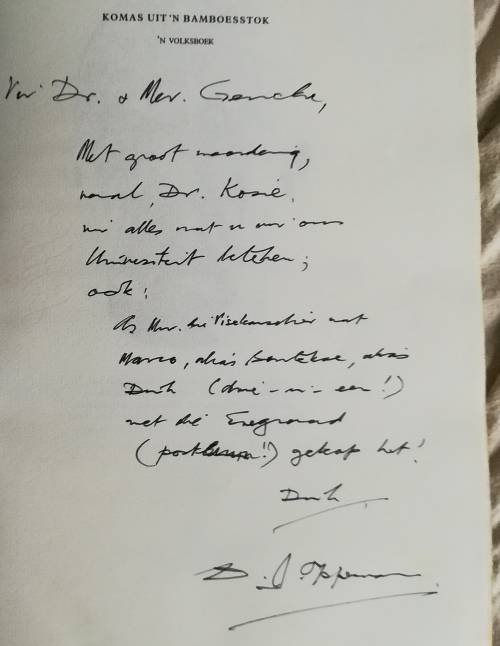 KOMAS UIT 'N BAMBOESSTOK
'N VOLKSBOEK
Vir Dr. & Mev. Gericke,
Met groot waardering,
veral, Dr. Kosie,
vir alles wat u vir ons
Universiteit beteken;
ook:
As Mnr. die Visekanselier wat
Marco, alias Bontekoe, alias
Dirk (drie-in-een!)
met die Eregraad
(post!) gekap het!
Dirk
D. J. Opperman